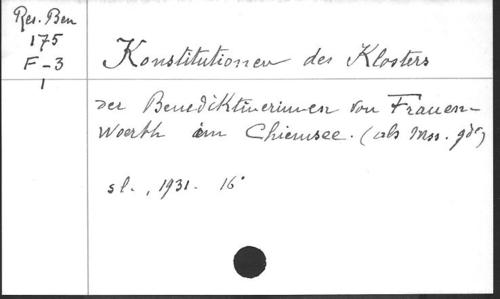 Res. Ben
175
F-3
1
Konstitutionen des Klosters
der Benediktinerinnen von Frauen-
woerth im Chiemsee. (als Mss. gdr)
sl., 1931. 16°